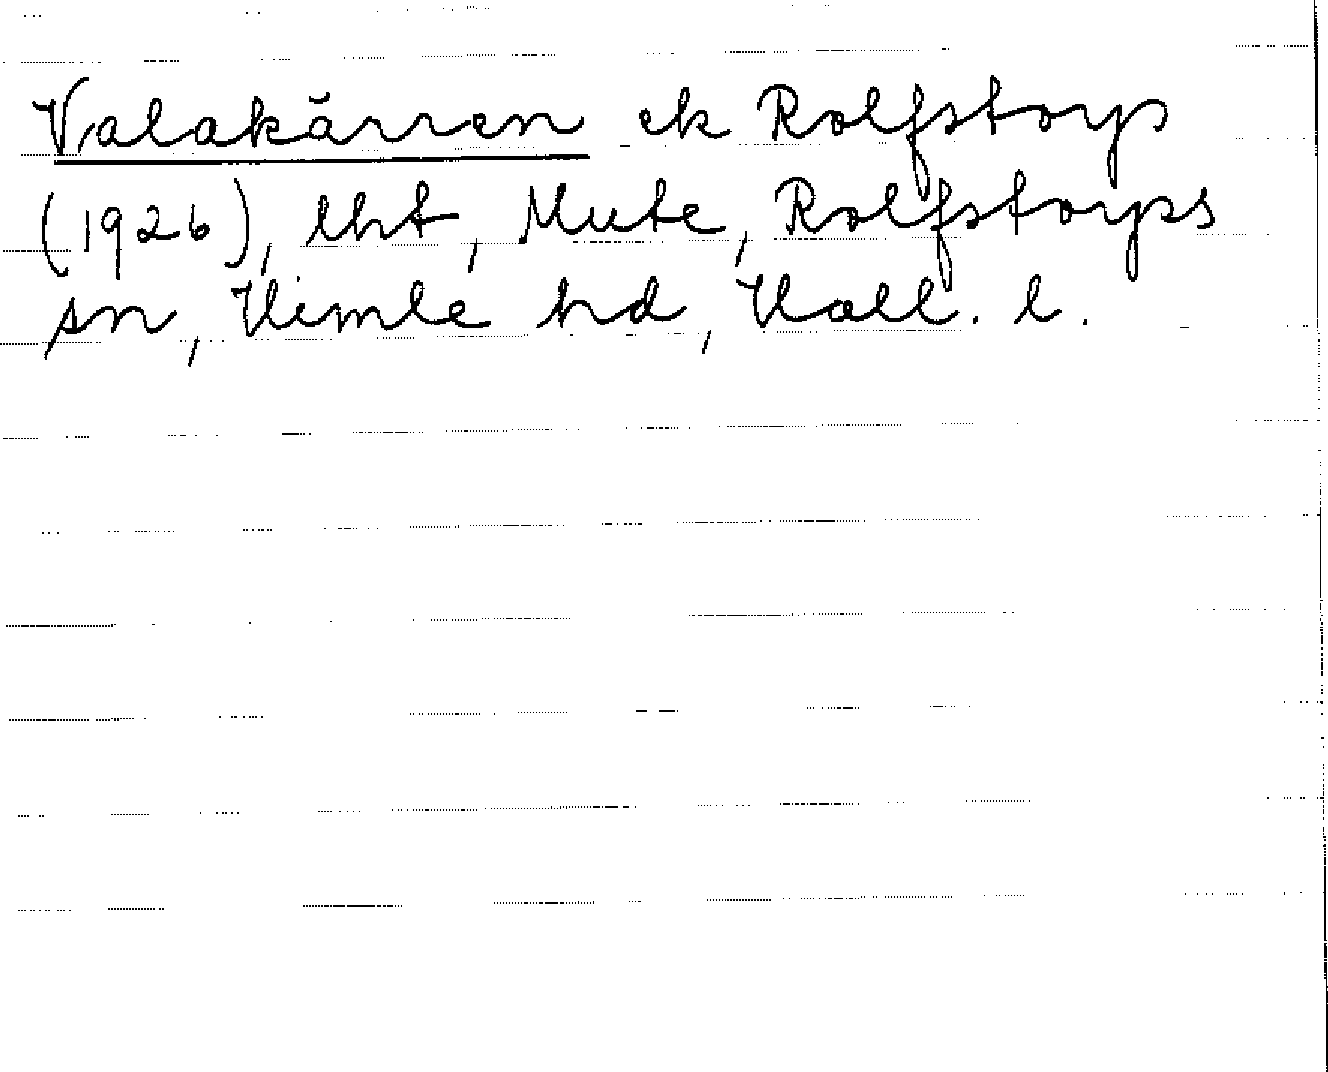 Valakärren ek Rolfstorp
(1926), lht, Mute, Rolfstorps
sn, Himle hd, Hall. l.